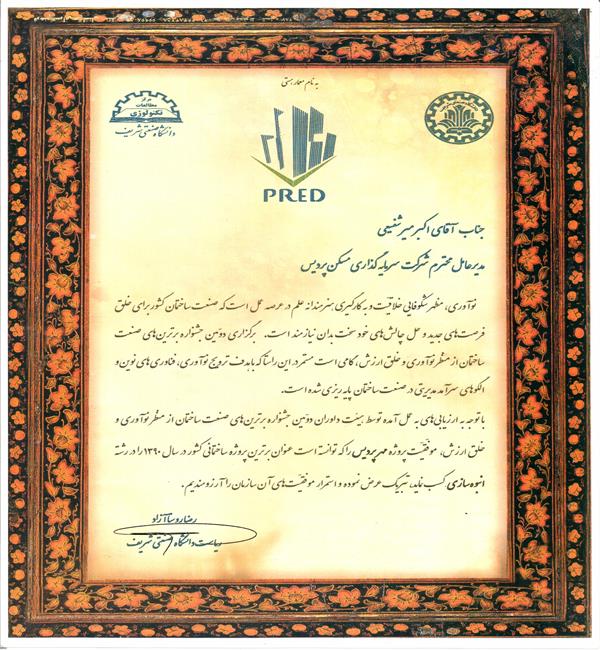 به نام معمار هستی
مرکز
مطالعات
تکنولوژی
دانشگاه صنعتی شریف
PRED
جناب آقای اکبر میرشفیعی
مدیرعامل محترم شرکت سرمایه گذاری مسکن پردیس
نوآوری، مظهر شکوفایی خلاقیت و به کارگیری هنرمندانه علم در عرصه عمل است که صنعت ساختمان کشور برای خلق
فرصت‌های جدید و حل چالش‌های خود سخت بدان نیازمند است. برگزاری دومین جشنواره برترین‌های صنعت
ساختمان از منظر نوآوری و خلق ارزش، گامی است مستمر در این راستا که با هدف ترویج نوآوری، فناوری‌های نوین و
الگوهای سرآمد مدیریتی در صنعت ساختمان پایه ریزی شده است.
با توجه به ارزیابی‌های به عمل آمده توسط هیئت داوران دومین جشنواره برترین‌های صنعت ساختمان از منظر نوآوری و
خلق ارزش، موفقیت پروژه مهر پردیس را که توانسته است عنوان برترین پروژه ساختمانی کشور در سال ۱۳۹۰ را در رشته
انبوه سازی کسب نماید، تبریک عرض نموده و استمرار موفقیت‌های آن سازمان را آرزومندیم.
رضا روستا آزاد
ریاست دانشگاه صنعتی شریف